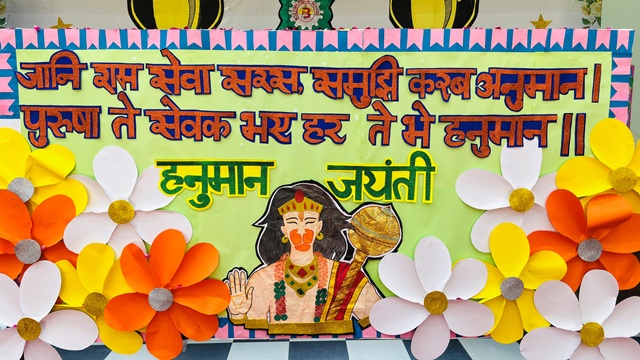 जानि राम सेवा सरस, समुझि करब अनुमान।
पुरुषा ते सेवक भए हर ते भे हनुमान॥
हनुमान जयंती